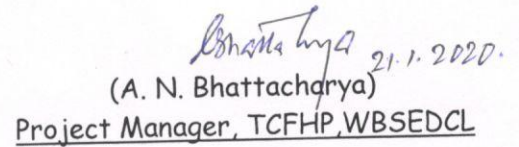 Bhattacharya 21.1.2020.
(A. N. Bhattacharya)
Project Manager, TCFHP,WBSEDCL